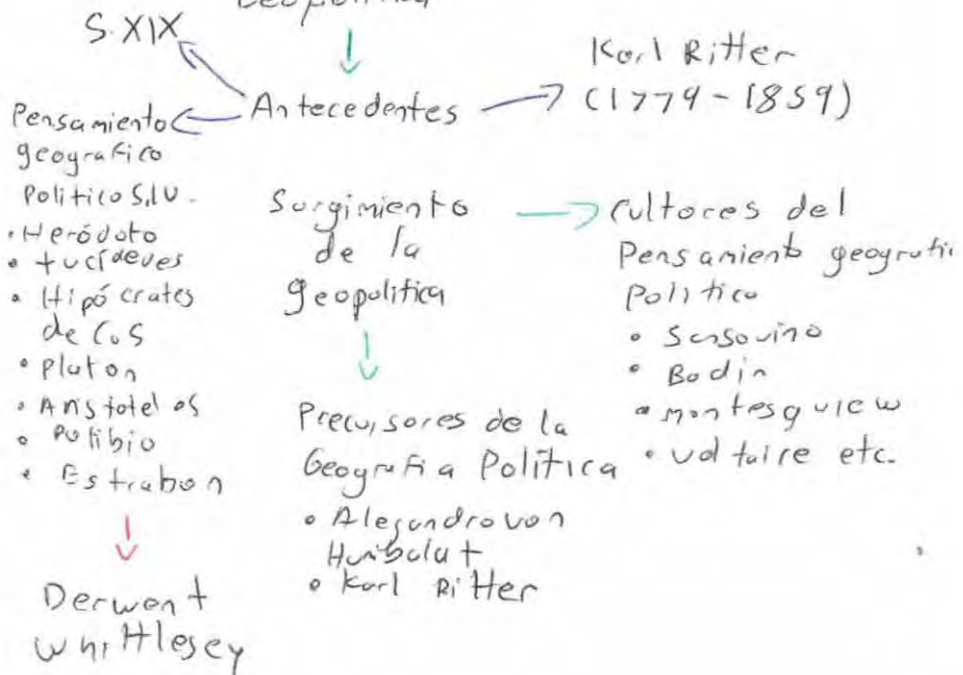 Geopolitica
S. XIX
Antecedentes
Karl Ritter
(1779-1859)
Pensamiento
geografico
Politico S.IV.
• Heródoto
• tucídeves
• Hipócrates
de Cos
• Platon
• Aristoteles
• Polibio
• Estrabon
Derwent
Whittlesey
Surgimiento
de la
geopolitica
Precursores de la
Geografia Política
• Alejandro von
• Karl Ritter
Cultores del
Pensamiento geografic
Politico
• Sansovino
• Bodin
• montesquiew
• voltaire etc.